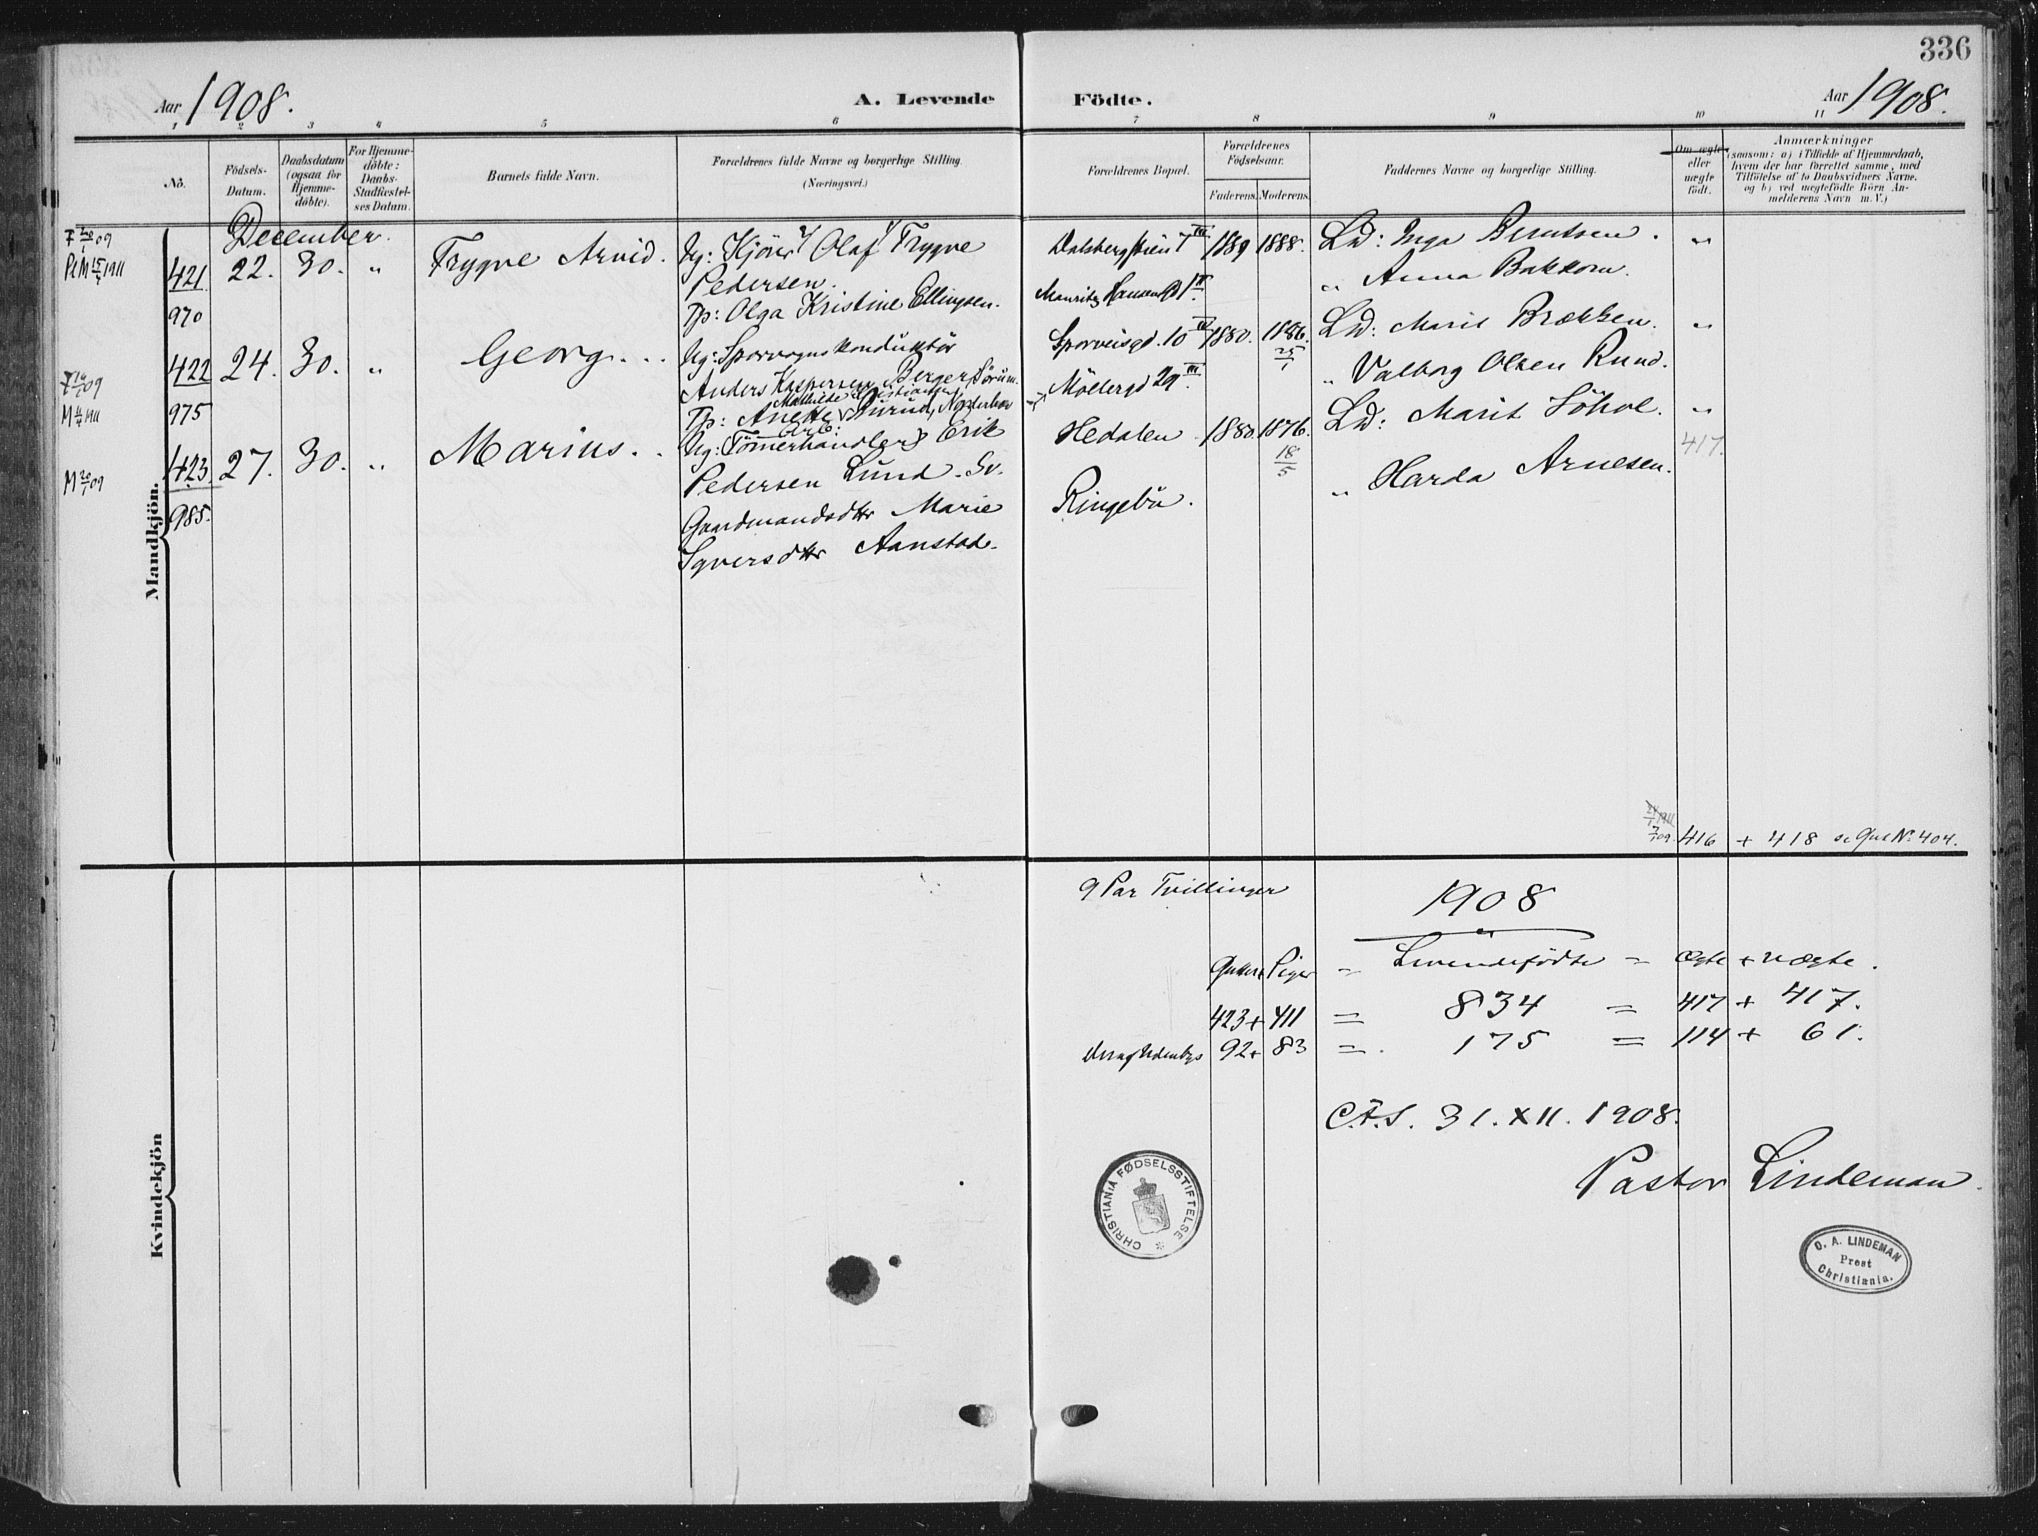 336
Aar 1908.
A. Levende Födte.
Aar 1908.
1 2 3 4 5 6 7 8 9 10 11
No.
Födsels-
Datum.
Daabsdatum
(ogsaa for
Hjemme-
döbte).
For Hjemme-
döbte:
Daabs-
Stadfæstel-
ses Datum.
Barnets fulde Navn.
Forældrenes fulde Navne og borgerlige Stilling.
(Næringsvei.)
Forældrenes Bopæl.
Forældrenes
Födselsaar.
Faderens. Moderens.
Faddernes Navne og borgerlige Stilling.
Om ægte
eller
uægte
födt.
Anmærkninger
(saasom: a) i Tilfælde af Hjemmedaab,
hvem der har forrettet samme, med
Tilföielse af to Daabsvidners Navne.
og b) ved uægtefödte Börn An-
melderens Navn m. V.)
Mandkjön.
December.
421 22. 30. „ Trygve Arvid.
970
Ug: Kjörer Olaf Trygve
Pedersen.
Pp: Olga Kristine Ellingsen.
Dalsbergstien 7 III
Mauritz Hansens g. 1 II
1889 1888.
Lw: Inga Berntsen. „
„ Anna Bakkom.
422 24. 30. „ Georg
975
Ug: Sporvognskonduktör
Anders Kaspersen Berger, Sörum.
Mathilde Kristiansen
Pp: Anette
Sporveisgd. 10 IV
Möllergd 29 III
1880. 1886.
25/1
Lw: Marit Brækken. „
„ Valborg Olsen Rund.
423 27. 30. „ Marius
985.
Arb:
Ug: (Tömmerhandler) Erik
Pedersen Lund. Gv.
Gaardmandsdttr Marie
Syversdttr Aanstad.
Hedalen
Ringebu.
1880. 1876.
18/5
Lw: Marit Söhol. „
417.
„ Harda Arnesen.
416 + 418 se Gut No. 404.
Kvindekjön
9 Par Tvillinger
1908
Gutter + Piger = Levendefödte = ægte + uægte.
423 + 411 = 834 = 417 + 417.
Deraf Udenbys 92 + 83 = 175 = 114 + 61.
C.F.S. 31. XII. 1908.
Pastor Lindeman.
CHRISTIANIA FØDSELSSTIFTELSE
O. A. LINDEMAN
Prest
Christiania.